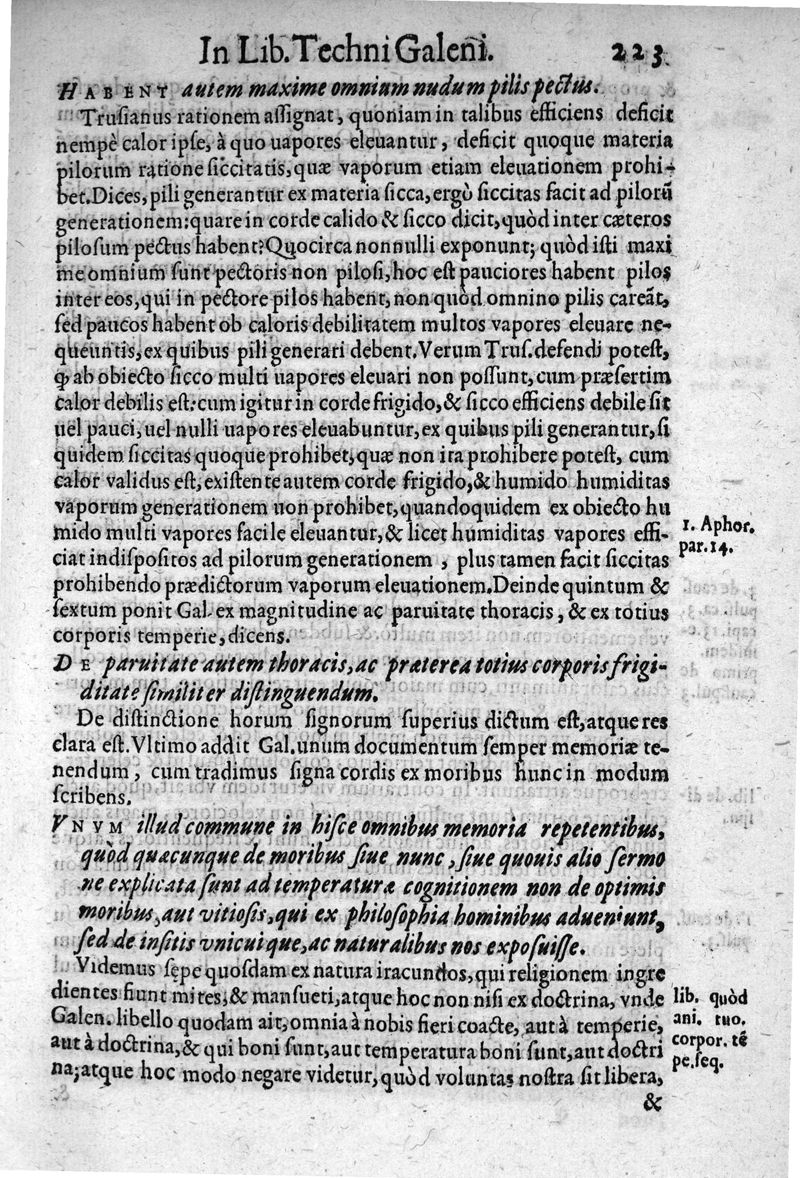 In Lib. Techni Galeni. 223
HABENT autem maxime omnium nudum pilis pectus.
Trusianus rationem assignat, quoniam in talibus efficiens deficit
nempè calor ipse, à quo uapores eleuantur, deficit quoque materia
pilorum ratione siccitatis, quæ vaporum etiam eleuationem prohi-
bet. Dices, pili generantur ex materia sicca, ergò siccitas facit ad pilorũ
generationem: quare in corde calido & sicco dicit, quòd inter cæteros
pilosum pectus habent? Quocirca nonnulli exponunt; quòd isti maxi
me omnium sunt pectoris non pilosi, hoc est pauciores habent pilos
inter eos, qui in pectore pilos habent, non quòd omnino pilis careãt,
sed paucos habent ob caloris debilitatem multos vapores eleuare ne-
queuntis, ex quibus pili generari debent. Verum Trus. defendi potest,
ꝙ ab obiecto sicco multi uapores eleuari non possunt, cum præsertim
calor debilis est: cum igitur in corde frigido, & sicco efficiens debile sit
uel pauci, uel nulli uapores eleuabuntur, ex quibus pili generantur, si
quidem siccitas quoque prohibet, quæ non ita prohibere potest, cum
calor validus est, existente autem corde frigido, & humido humiditas
vaporum generationem non prohibet, quandoquidem ex obiecto hu
mido multi vapores facile eleuantur, & licet humiditas vapores effi-
ciat indispositos ad pilorum generationem, plus tamen facit siccitas
prohibendo prædictorum vaporum eleuationem. Deinde quintum &
sextum ponit Gal. ex magnitudine ac paruitate thoracis, & ex totius
corporis temperie, dicens.
1. Aphor.
par. 14.
DE paruitate autem thoracis, ac præterea totius corporis frigi-
ditate similiter distinguendum.
De distinctione horum signorum superius dictum est, atque res
clara est. Vltimo addit Gal. unum documentum semper memoriæ te-
nendum, cum tradimus signa cordis ex moribus hunc in modum
scribens.
VNVM illud commune in hisce omnibus memoria repetentibus,
quòd quæcunque de moribus siue nunc, siue quouis alio sermo
ne explicata sunt ad temperaturæ cognitionem non de optimis
moribus, aut vitiosis, qui ex philosophia hominibus adueniunt,
sed de insitis vnicuique, ac naturalibus nos exposuisse.
Videmus sępe quosdam ex natura iracundos, qui religionem ingre
dientes fiunt mites; & mansueti, atque hoc non nisi ex doctrina, vnde
Galen. libello quodam ait, omnia à nobis fieri coacte, aut à temperie,
aut à doctrina, & qui boni sunt, aut temperatura boni sunt, aut doctri
na; atque hoc modo negare videtur, quòd voluntas nostra sit libera,
lib. quòd
ani. tuo.
corpor. tẽ
pe. seq.
&